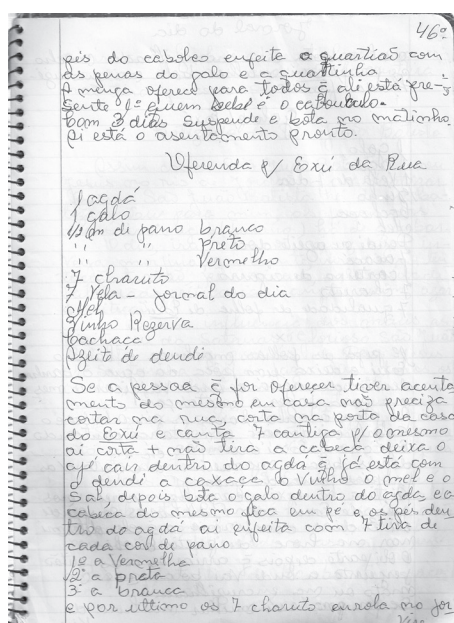 46º
pés do caboleo enfeita o quartião com
as penas do galo e a quartinha
A menga oferece para todos q̃ ali está pre-
sente 1º quem bebe é o caboculo.
Com 3 dias suspende e bota no matinho.
Ai está o asentamento pronto.
Oferenda p/ Exú da Rua
1 agdá
1 galo
1/2 m de pano branco
" " preto
" " Vermelho
7 charuto
7 Vela - jornal do dia
Mel
Vinho Rezerva
Cachaca
Azeite de dendê
Se a pessoa q̃ for oferecer tiver acenta
mento do mesmo em casa não preciza
cortar na rua, corta na porta da casa
do Exú e canta 7 cantiga p/ o mesmo
ai corta + não tira a cabeca deixa o
ajé cair dentro do agdá q̃ já está com
o dendê a caxaça o vinho o mel e o
Sal, depois bota o galo dentro do agda, e a
cabeca do mesmo fica em pé e os pés den
tro do agdá ai enfeita com 7 tira de
cada cor de pano
1º a Vermelha
2º a preta
3º a branca
e por ultimo os 7 charuto enrola no jor